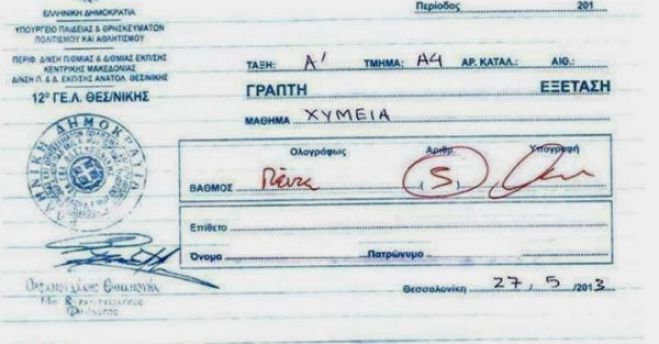 ΕΛΛΗΝΙΚΗ ΔΗΜΟΚΡΑΤΙΑ
ΥΠΟΥΡΓΕΙΟ ΠΑΙΔΕΙΑΣ & ΘΡΗΣΚΕΥΜΑΤΩΝ
ΠΟΛΙΤΙΣΜΟΥ ΚΑΙ ΑΘΛΗΤΙΣΜΟΥ
ΠΕΡΙΦ. Δ/ΝΣΗ Π/ΘΜΙΑΣ & Δ/ΘΜΙΑΣ ΕΚΠ/ΣΗΣ
ΚΕΝΤΡΙΚΗΣ ΜΑΚΕΔΟΝΙΑΣ
Δ/ΝΣΗ Π. & Δ. ΕΚΠ/ΣΗΣ ΑΝΑΤΟΛ. ΘΕΣ/ΝΙΚΗΣ
12º ΓΕ.Λ. ΘΕΣ/ΝΙΚΗΣ
Περίοδος 201
ΤΑΞΗ: Α' ΤΜΗΜΑ: Α4 ΑΡ. ΚΑΤΑΛ.: ΑΙΘ.:
ΓΡΑΠΤΗ ΕΞΕΤΑΣΗ
ΜΑΘΗΜΑ ΧΥΜΕΙΑ
Ολογράφως Αριθμ. Υπογραφή
ΒΑΘΜΟΣ Πέντε (5)
Επίθετο
Όνομα Πατρώνυμο
Θεσσαλονίκη 27, 5 /2013